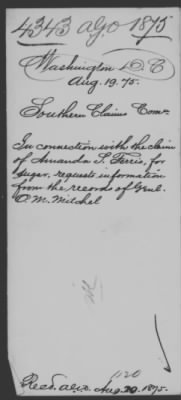 4343 ago 1875
Washington D.C
Aug. 19. 75.
Southern Claims Comr.
In connection with the claim
of Amanda S. Ferris, for
sugar, requests information
from the records of Genl.
O. M. Mitchel
1120
Recd. A.G.O. Aug 20. 1875.